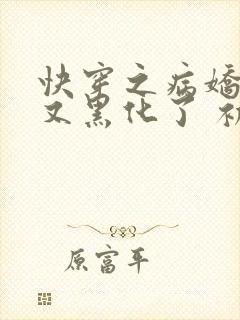 快穿之病嬌
又黑化了
原富平